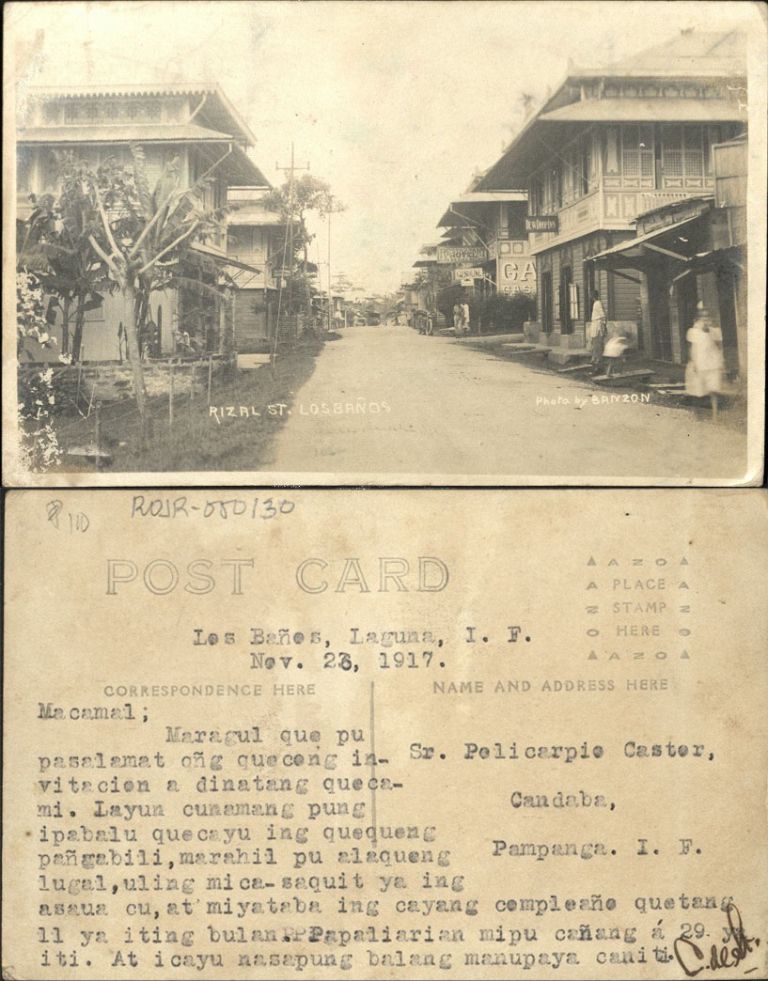 DEWDROP INN
GA
GAS
RIZAL ST. LOSBAÑOS
Photo by BANZON
110
ROJR-050130
POST CARD
AZO
PLACE
STAMP
HERE
AZO
Los Baños, Laguna, I. F.
Nov. 26, 1917.
CORRESPONDENCE HERE
NAME AND ADDRESS HERE
Macamal;
Maragul que pu
pasalamat cñg queceng in-
vitacion a dinatang queca-
mi. Layun cunamang pung
ipabalu quecayu ing quequeng
pañgabili,marahil pu alaqueng
lugal,uling mica-saquit ya ing
asaua cu,at miyataba ing cayang compleaño quetang
11 ya iting bulan. Papaliarian mipu cañang á 29 ya
iti. At icayu nasapung balang manupaya caniti.
Sr. Policarpio Castor,
Candaba,
Pampanga. I. F.